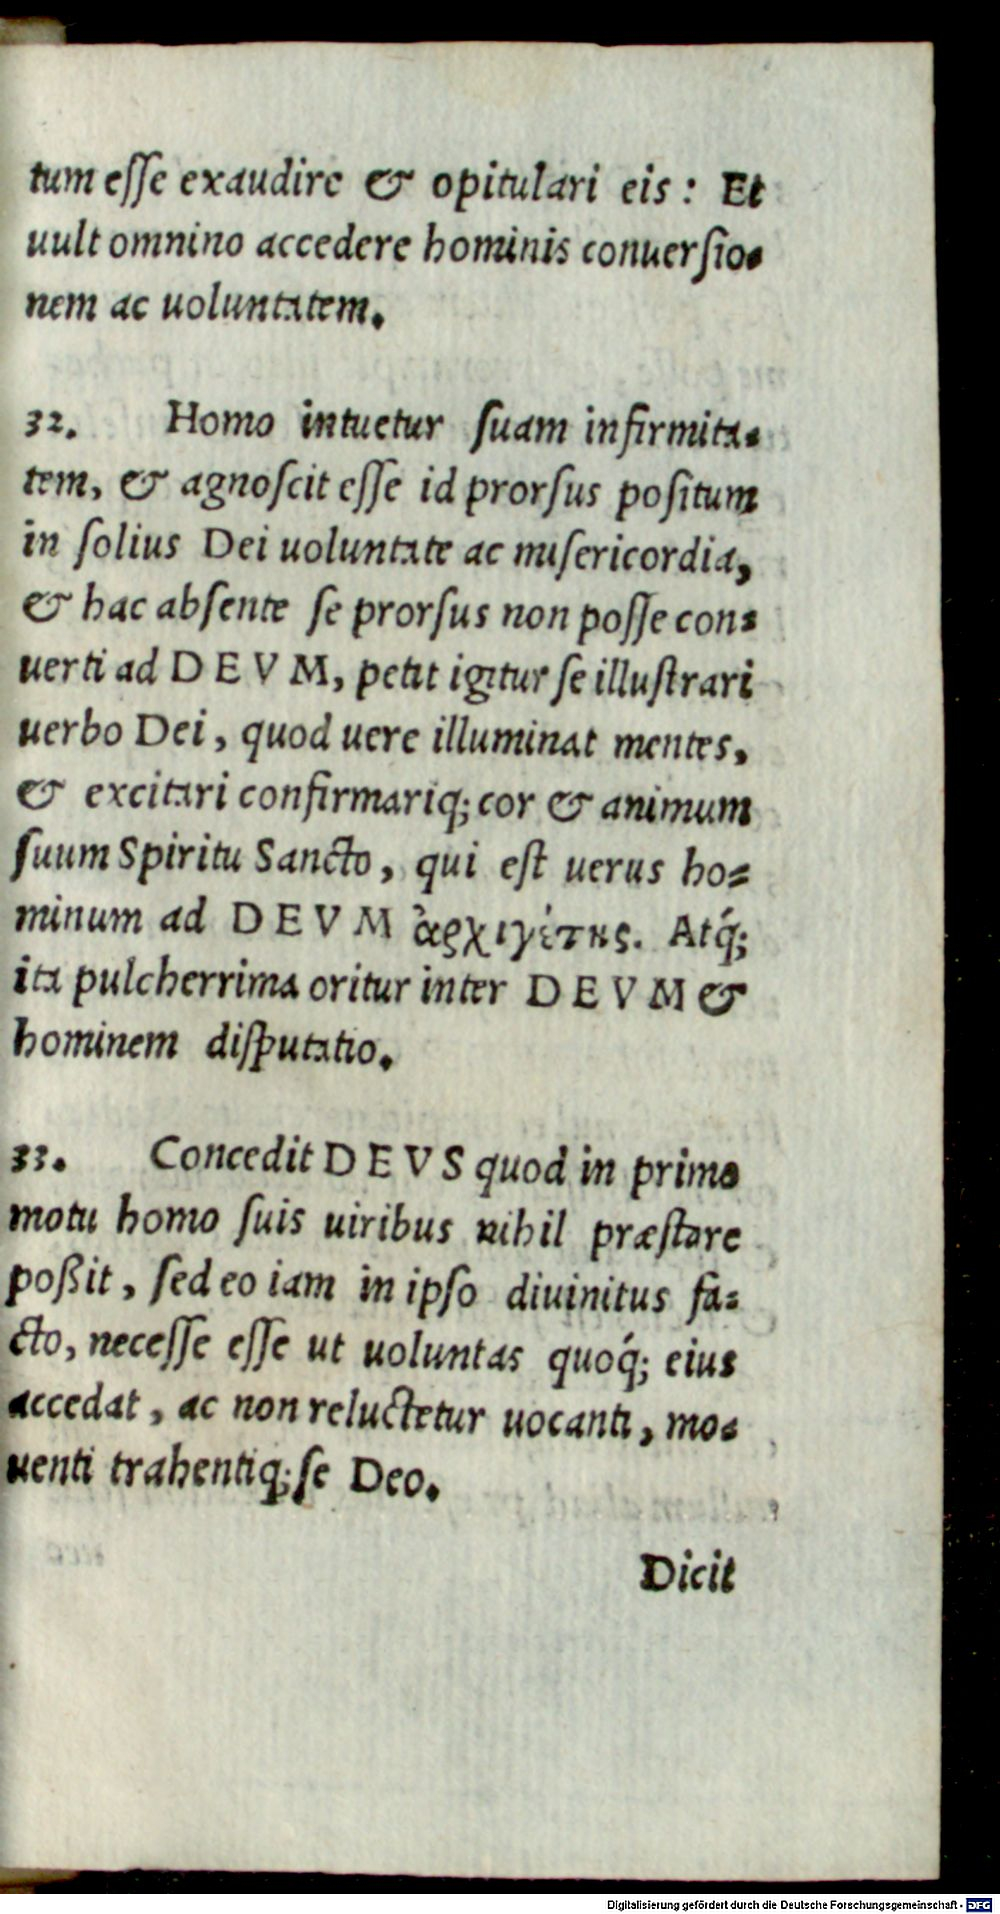 tum eſſe exaudire & opitulari eis: Et
uult omnino accedere hominis conuerſio-
nem ac uoluntatem.
32. Homo intuetur ſuam infirmita-
tem, & agnoſcit eſſe id prorſus poſitum
in ſolius Dei uoluntate ac miſericordia,
& hac abſente ſe prorſus non poſſe con-
uerti ad DEVM, petit igitur ſe illuſtrari
uerbo Dei, quod uere illuminat mentes,
& excitari confirmariq; cor & animum
ſuum Spiritu Sancto, qui eſt uerus ho-
minum ad DEVM ἀρχιγέτης. Atq́;
ita pulcherrima oritur inter DEVM &
hominem diſputatio.
33. Concedit DEVS quod in primo
motu homo ſuis uiribus nihil præſtare
poßit, ſed eo iam in ipſo diuinitus fa-
cto, neceſſe eſſe ut uoluntas quoq́; eius
accedat, ac non reluctetur uocanti, mo-
uenti trahentiq; ſe Deo.
Dicit
Digitalisierung gefördert durch die Deutsche Forschungsgemeinschaft - DFG